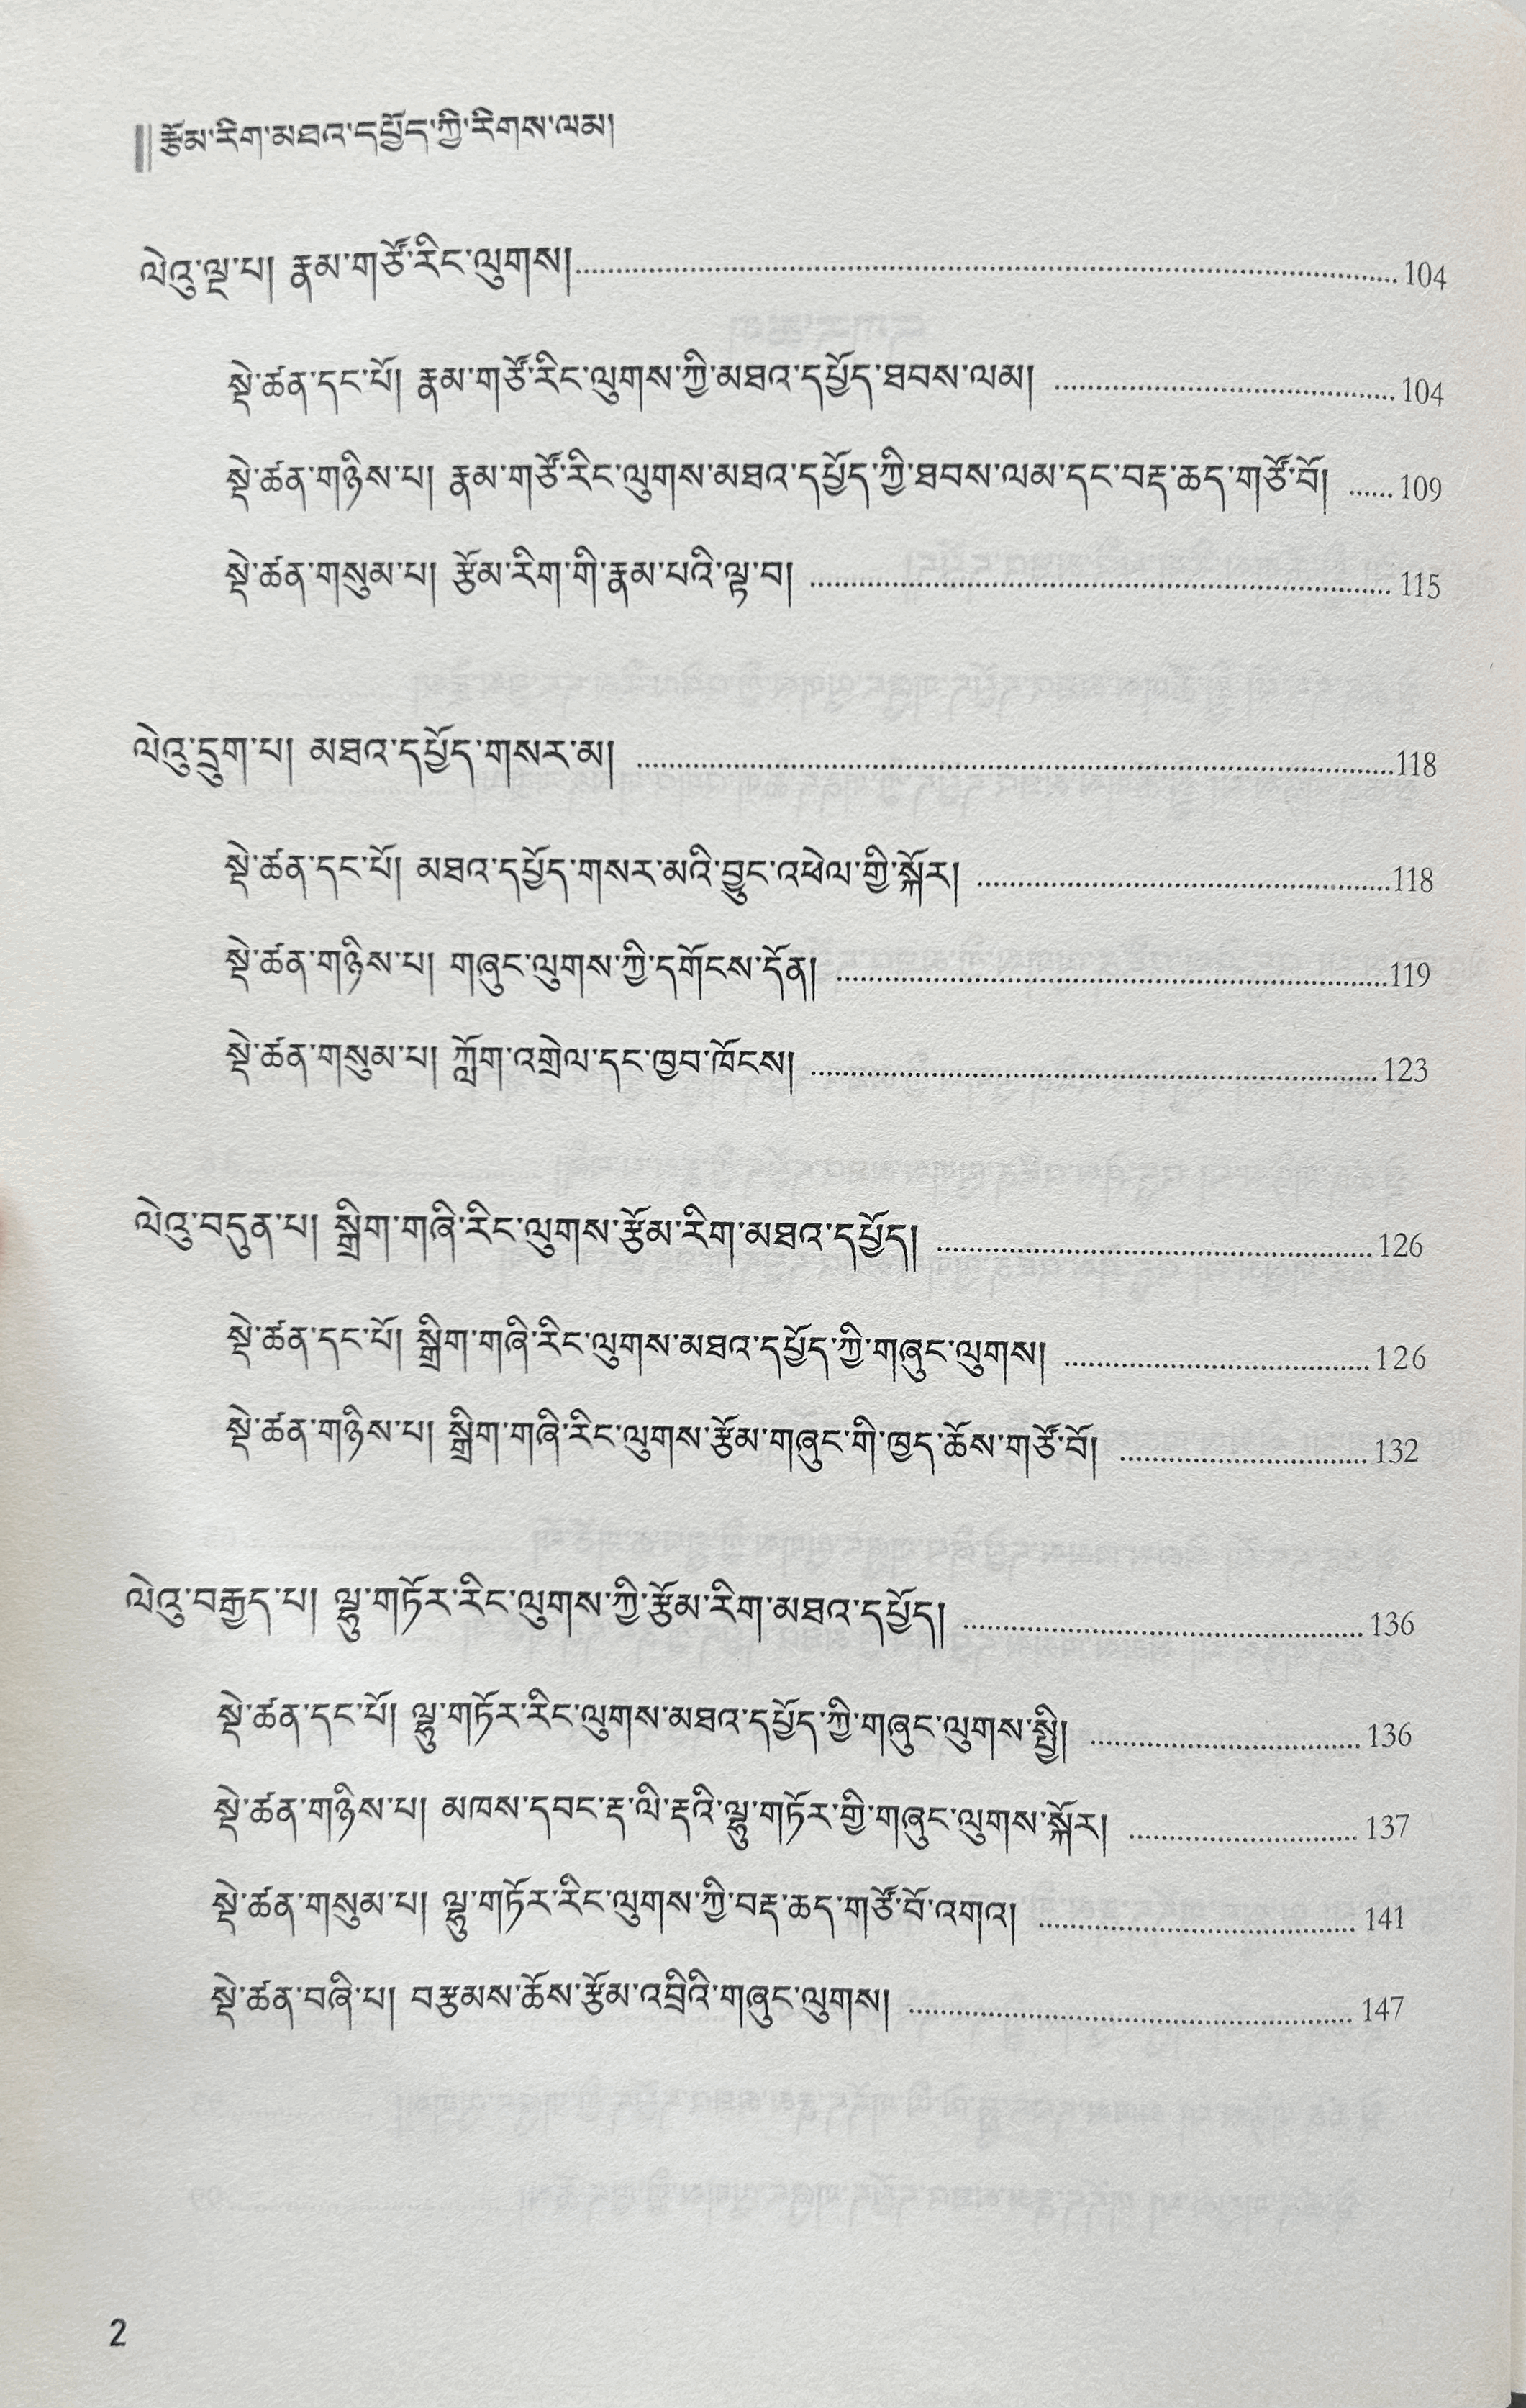 རྩོམ་རིག་མཐའ་དཔྱོད་ཀྱི་རིགས་ལམ།
ལེའུ་ལྔ་པ། རྣམ་གཙོ་རིང་ལུགས།........104
སྡེ་ཚན་དང་པོ། རྣམ་གཙོ་རིང་ལུགས་ཀྱི་མཐའ་དཔྱོད་ཐབས་ལམ། ........104
སྡེ་ཚན་གཉིས་པ། རྣམ་གཙོ་རིང་ལུགས་མཐའ་དཔྱོད་ཀྱི་ཐབས་ལམ་དང་བརྡ་ཆད་གཙོ་བོ། ......109
སྡེ་ཚན་གསུམ་པ། རྩོམ་རིག་གི་རྣམ་པའི་ལྟ་བ། ........115
ལེའུ་དྲུག་པ། མཐའ་དཔྱོད་གསར་མ། ........118
སྡེ་ཚན་དང་པོ། མཐའ་དཔྱོད་གསར་མའི་བྱུང་འཕེལ་གྱི་སྐོར། ........118
སྡེ་ཚན་གཉིས་པ། གཞུང་ལུགས་ཀྱི་དགོངས་དོན། ........119
སྡེ་ཚན་གསུམ་པ། ཀློག་འགྲེལ་དང་ཁྱབ་ཁོངས། ........123
ལེའུ་བདུན་པ། སྒྲིག་གཞི་རིང་ལུགས་རྩོམ་རིག་མཐའ་དཔྱོད། ........126
སྡེ་ཚན་དང་པོ། སྒྲིག་གཞི་རིང་ལུགས་མཐའ་དཔྱོད་ཀྱི་གཞུང་ལུགས། ........126
སྡེ་ཚན་གཉིས་པ། སྒྲིག་གཞི་རིང་ལུགས་རྩོམ་གཞུང་གི་ཁྱད་ཆོས་གཙོ་བོ། ........132
ལེའུ་བརྒྱད་པ། ལྷུ་གཏོར་རིང་ལུགས་ཀྱི་རྩོམ་རིག་མཐའ་དཔྱོད། ........136
སྡེ་ཚན་དང་པོ། ལྷུ་གཏོར་རིང་ལུགས་མཐའ་དཔྱོད་ཀྱི་གཞུང་ལུགས་སྤྱི། ........136
སྡེ་ཚན་གཉིས་པ། མཁས་དབང་རྡ་ལི་རྡའི་ལྷུ་གཏོར་གྱི་གཞུང་ལུགས་སྐོར། ........137
སྡེ་ཚན་གསུམ་པ། ལྷུ་གཏོར་རིང་ལུགས་ཀྱི་བརྡ་ཆད་གཙོ་བོ་འགའ། ........141
སྡེ་ཚན་བཞི་པ། བརྩམས་ཆོས་རྩོམ་འབྲིའི་གཞུང་ལུགས། ........147
2